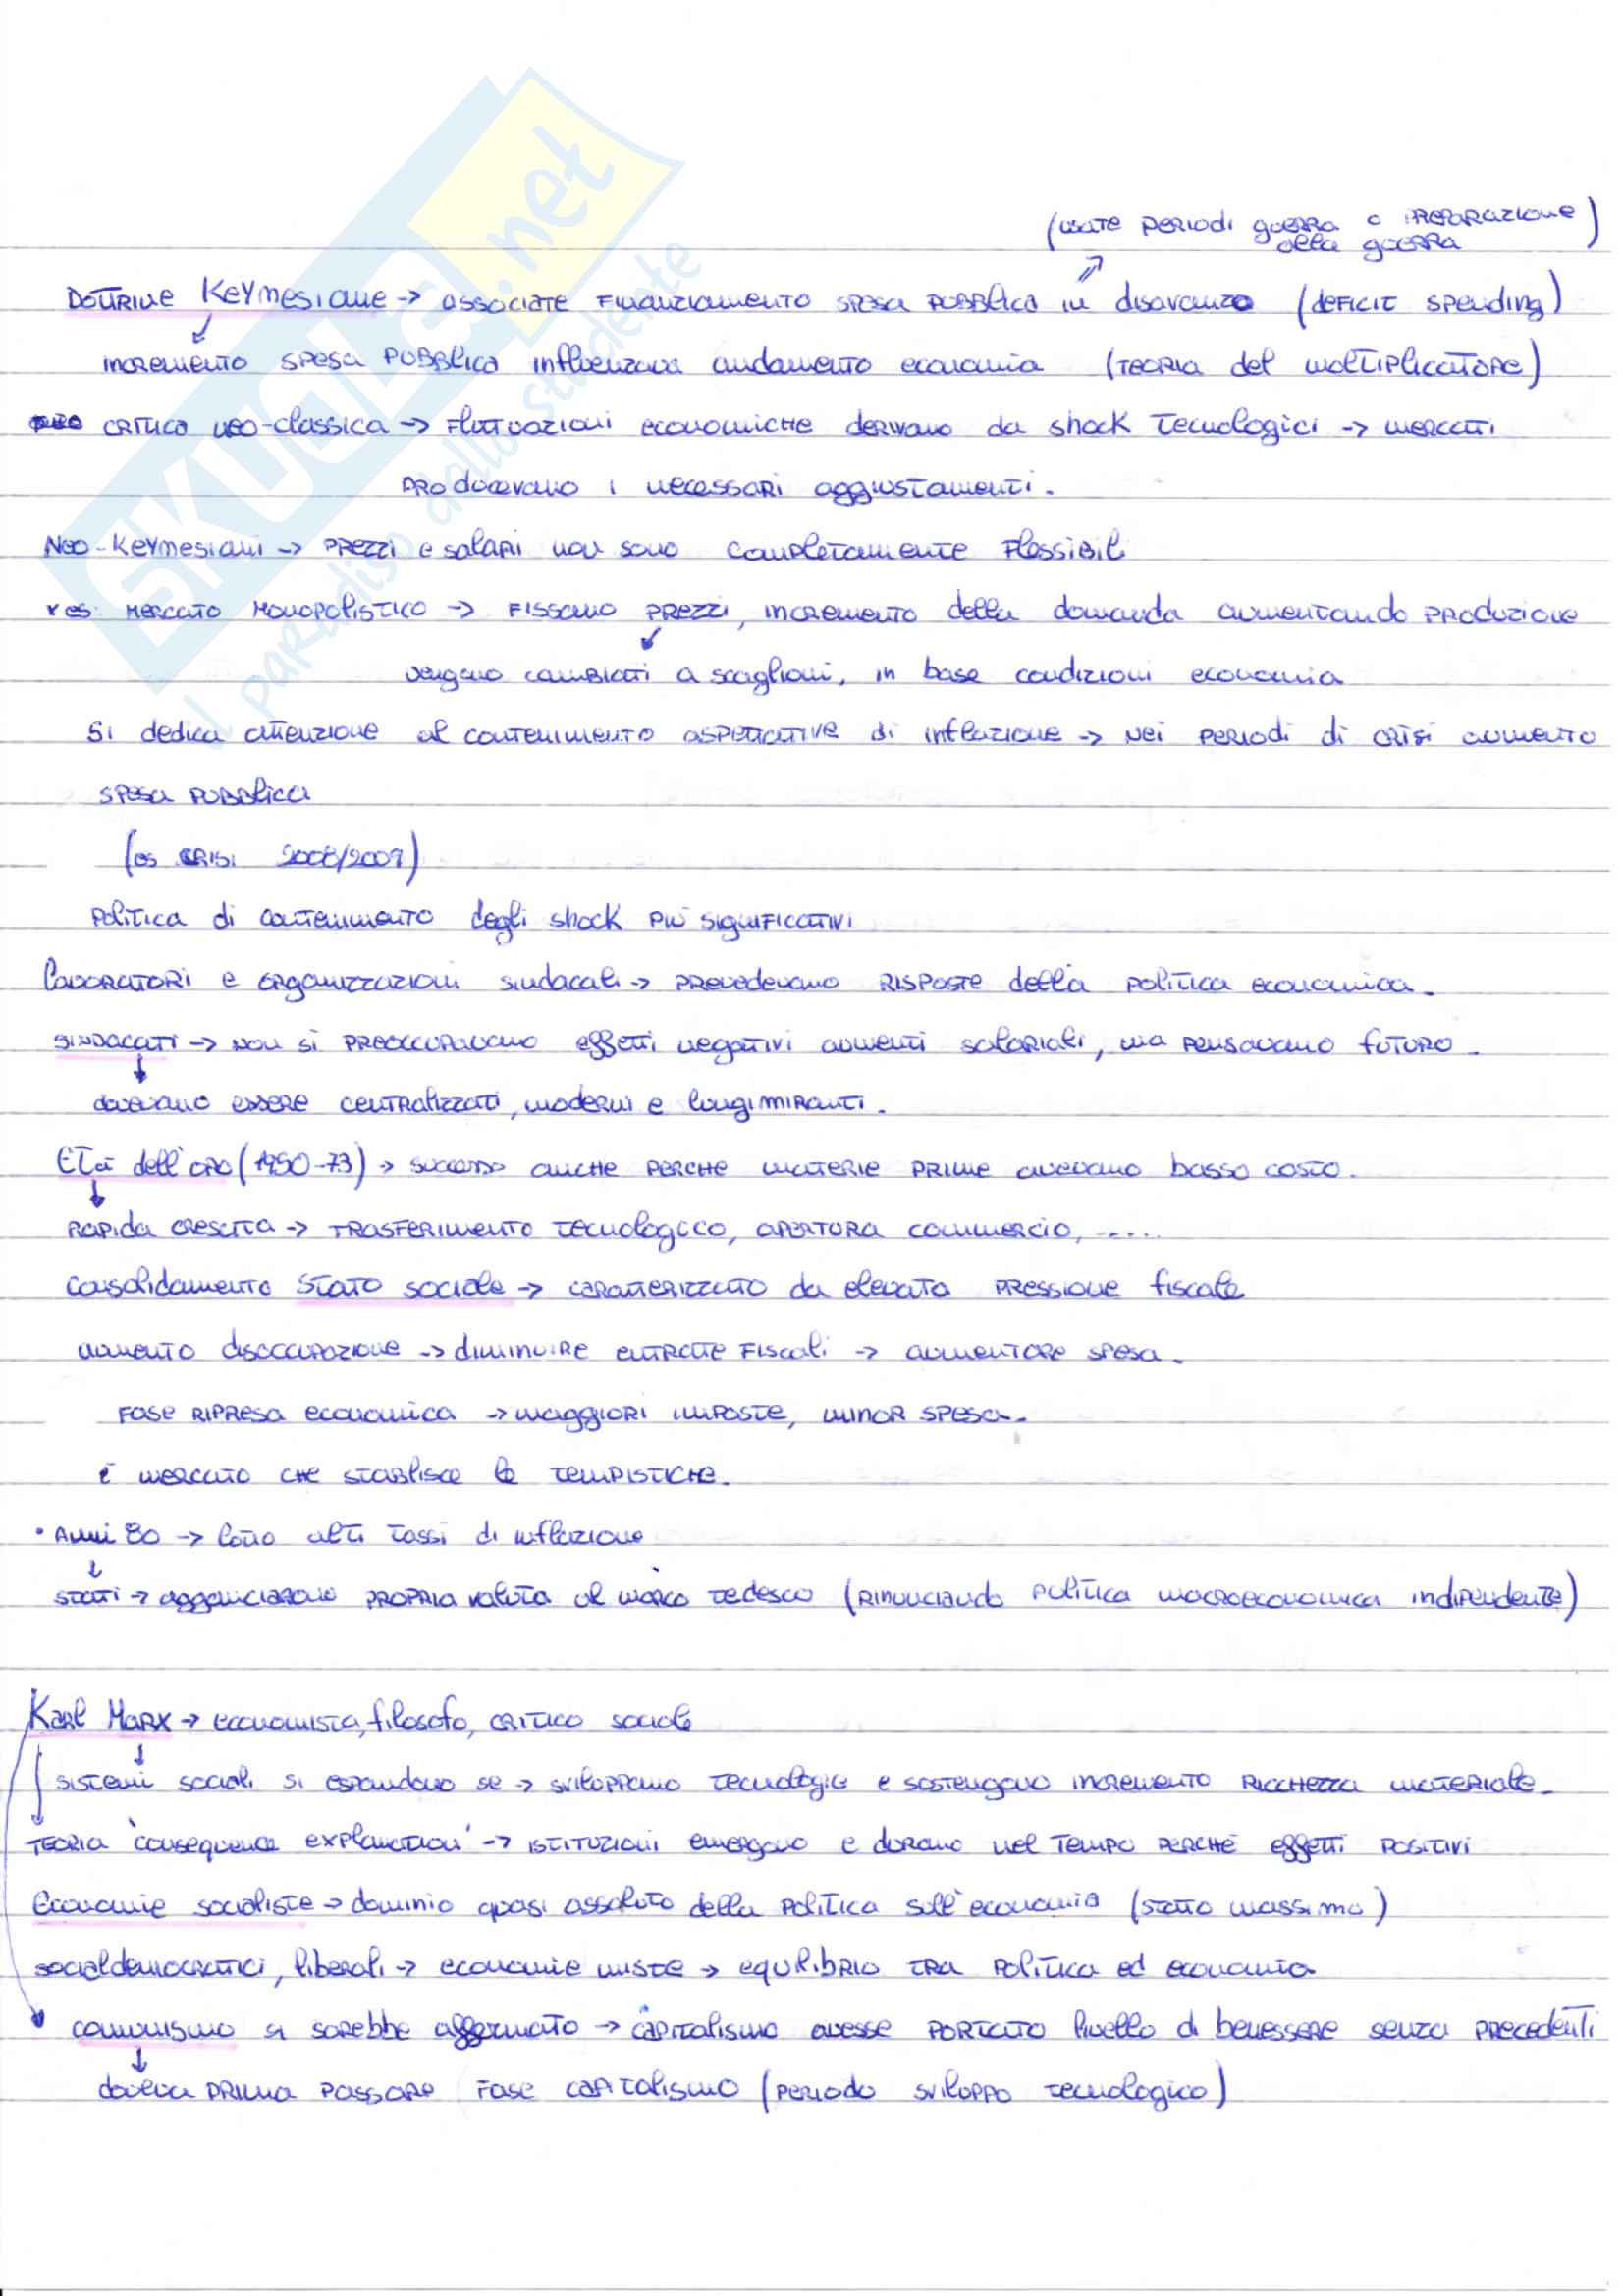 SKUOLA.net
il paradiso dello studente
(usate periodi guerra o preparazione
alla guerra)
Dottrine Keynesiane -> associate finanziamento spesa pubblica in disavanzo (deficit spending)
incremento spesa pubblica influenzava andamento economia (teoria del moltiplicatore)
critica neo-classica -> fluttuazioni economiche derivano da shock tecnologici -> mercati
producevano i necessari aggiustamenti.
Neo-Keynesiani -> prezzi e salari non sono completamente flessibili
es. mercato monopolistico -> fissano prezzi, incremento della domanda aumentando produzione
vengono cambiati a scaglioni, in base condizioni economia
Si dedica attenzione al contenimento aspettative di inflazione -> nei periodi di crisi aumento
spesa pubblica
(es crisi 2008/2009)
Politica di contenimento degli shock più significativi
Lavoratori e organizzazioni sindacali -> prevedevano risposte della politica economica.
sindacati -> non si preoccupavano effetti negativi aumenti salariali, ma pensavano futuro.
dovevano essere centralizzati, moderni e longimiranti.
Età dell'oro (1950-73) -> successo anche perche materie prime avevano basso costo.
rapida crescita -> trasferimento tecnologico, apertura commercio, .....
Consolidamento stato sociale -> caratterizzato da elevata pressione fiscale
aumento disoccupazione -> diminuire entrate fiscali -> aumentare spesa.
Fase ripresa economica -> maggiori imposte, minor spesa.
è mercato che stabilisce le tempistiche.
• Anni 80 -> lotta alti tassi di inflazione
stati -> agganciarono propria valuta al marco tedesco (rinunciando politica macroeconomica indipendente)
Karl Marx -> economista, filosofo, critico sociale
sistemi sociali si espandono se -> sviluppano tecnologie e sostengono incremento ricchezza materiale.
Teoria 'consequence explanation' -> istituzioni emergono e durano nel tempo perchè effetti positivi
Economie socialiste -> dominio quasi assoluto della politica sull'economia (stato massimo)
socialdemocratici, liberali -> economie miste -> equilibrio tra politica ed economia
comunismo si sarebbe affermato -> capitalismo avesse portato livello di benessere senza precedenti
doveva prima passare fase capitalismo (periodo sviluppo tecnologico)